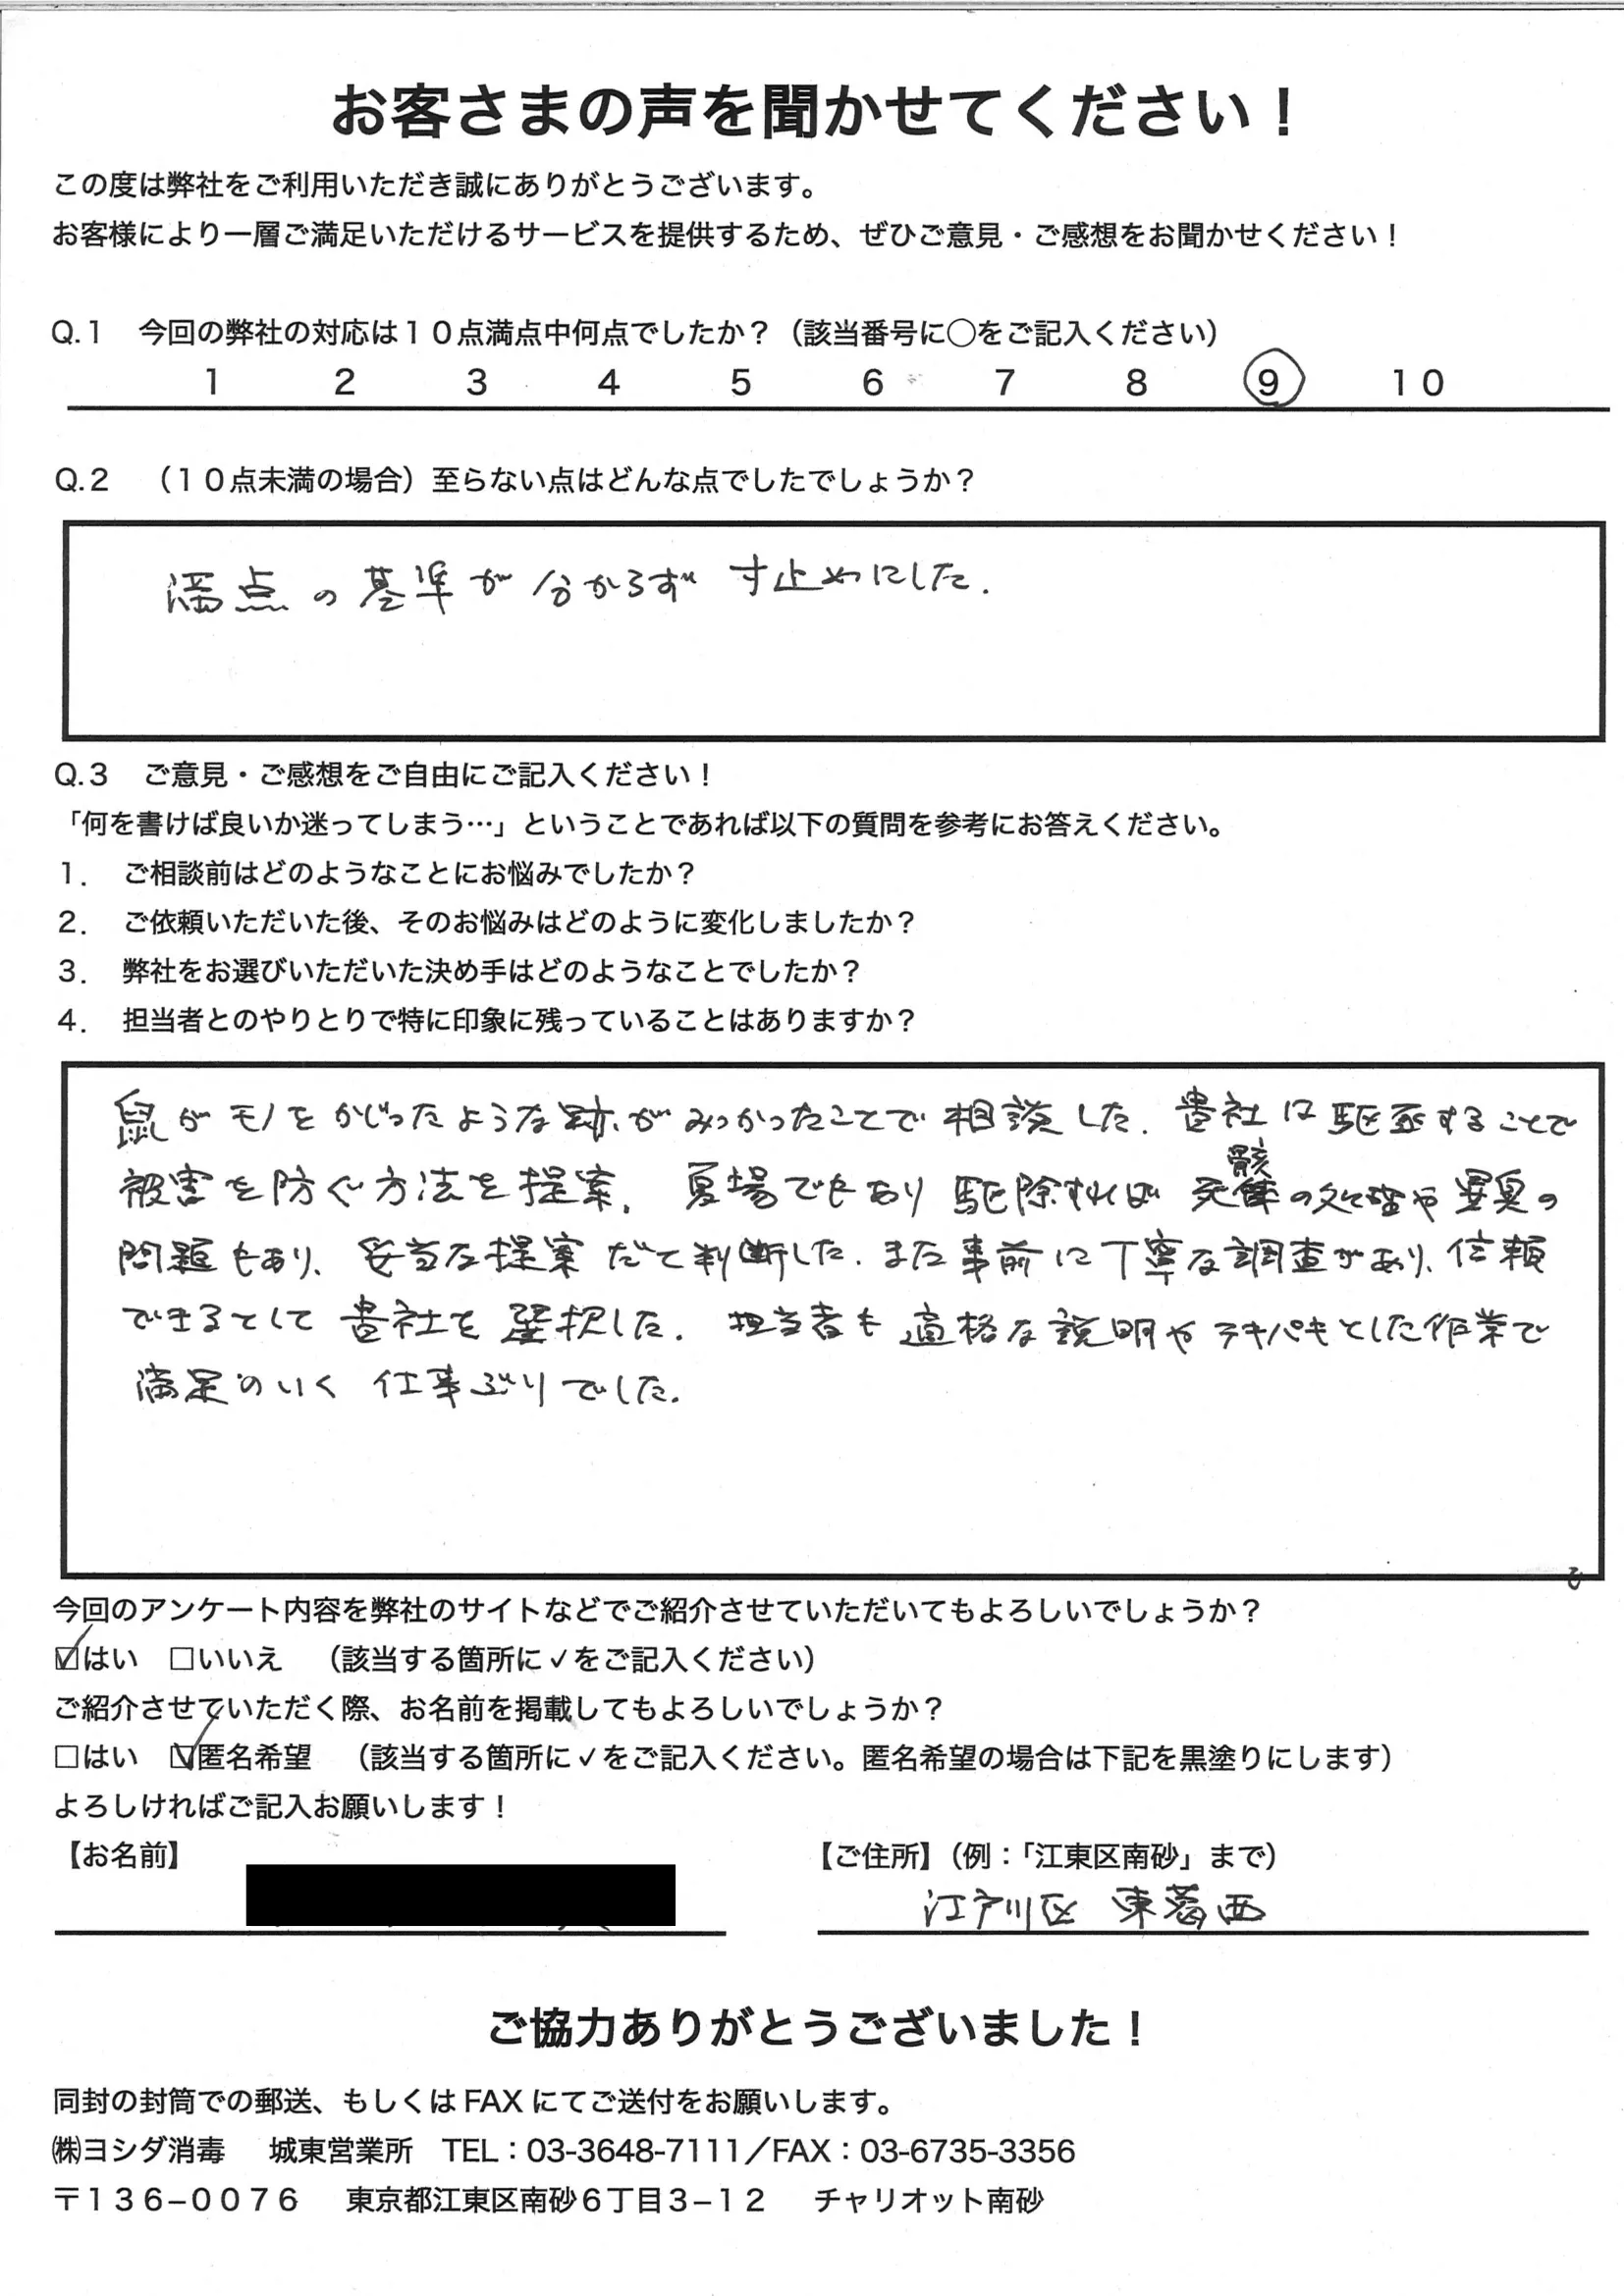 お客さまの声を聞かせてください！
この度は弊社をご利用いただき誠にありがとうございます。
お客様により一層ご満足いただけるサービスを提供するため、ぜひご意見・ご感想をお聞かせください！
Q.1　今回の弊社の対応は１０点満点中何点でしたか？（該当番号に○をご記入ください）
1 2 3 4 5 6 7 8 9 10
Q.2　（１０点未満の場合）至らない点はどんな点でしたでしょうか？
満点の基準が分からず寸止めにした.
Q.3　ご意見・ご感想をご自由にご記入ください！
「何を書けば良いか迷ってしまう…」ということであれば以下の質問を参考にお答えください。
１．　ご相談前はどのようなことにお悩みでしたか？
２．　ご依頼いただいた後、そのお悩みはどのように変化しましたか？
３．　弊社をお選びいただいた決め手はどのようなことでしたか？
４．　担当者とのやりとりで特に印象に残っていることはありますか？
鼠がモノをかじったような跡がみつかったことで相談した. 貴社はすることで
被害を防ぐ方法を提案. 夏場でもあり駆除すれば死骸の処理や異臭の
問題もあり、妥当な提案だと判断した. また事前に丁寧な調査があり、信頼
できるとして貴社を選択した. 担当者も適格な説明やテキパキとした作業で
満足のいく仕事ぶりでした.
今回のアンケート内容を弊社のサイトなどでご紹介させていただいてもよろしいでしょうか？
☑はい　□いいえ　（該当する箇所に✓をご記入ください）
ご紹介させていただく際、お名前を掲載してもよろしいでしょうか？
□はい　☑匿名希望　（該当する箇所に✓をご記入ください。匿名希望の場合は下記を黒塗りにします）
よろしければご記入お願いします！
【お名前】　【ご住所】（例：「江東区南砂」まで）
江戸川区 東葛西
ご協力ありがとうございました！
同封の封筒での郵送、もしくは FAX にてご送付をお願いします。
㈱ヨシダ消毒　城東営業所　TEL：03-3648-7111／FAX：03-6735-3356
〒１３６−００７６　東京都江東区南砂６丁目３−１２　チャリオット南砂